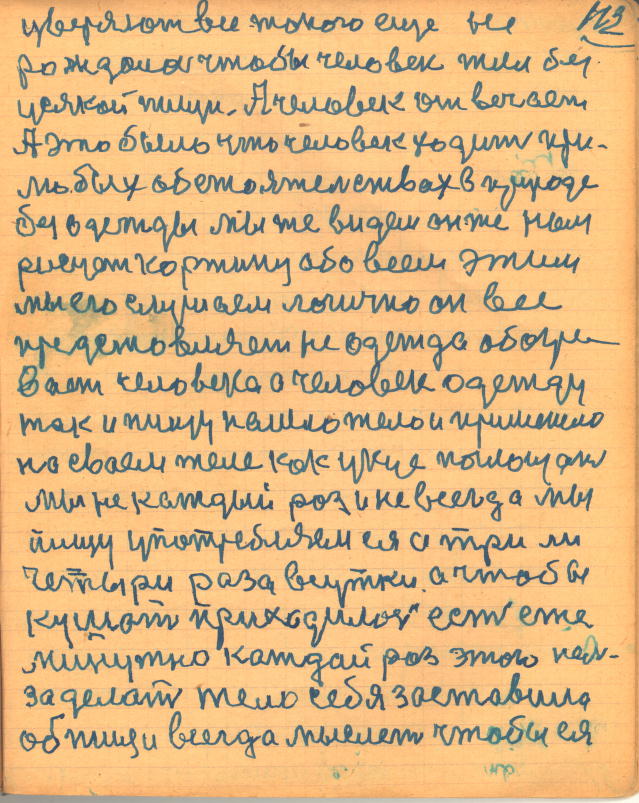 уверяют все такого еще не
113
рождалося чтобы человек жил без
усякой пищи. А человек отвечает
А это было что человек ходит при
любых обстоятельствах в природе
без одежды мы же видем он же нам
рисует картину обо всем этим
мы его слушаем логично он все
представляет не одежда обогре-
вает человека а человек одежду
так и пищу нашло тело и применило
на сваем теле как укус
мы не каждый раз и не всегда мы
пищу употребляем ея а три ли
четыри раза в сутки. а чтобы
кушат приходилося ест еже
минутно каждай раз этого нел-
за делат тело себя заставила
об пищи всегда мыслет чтобы ея